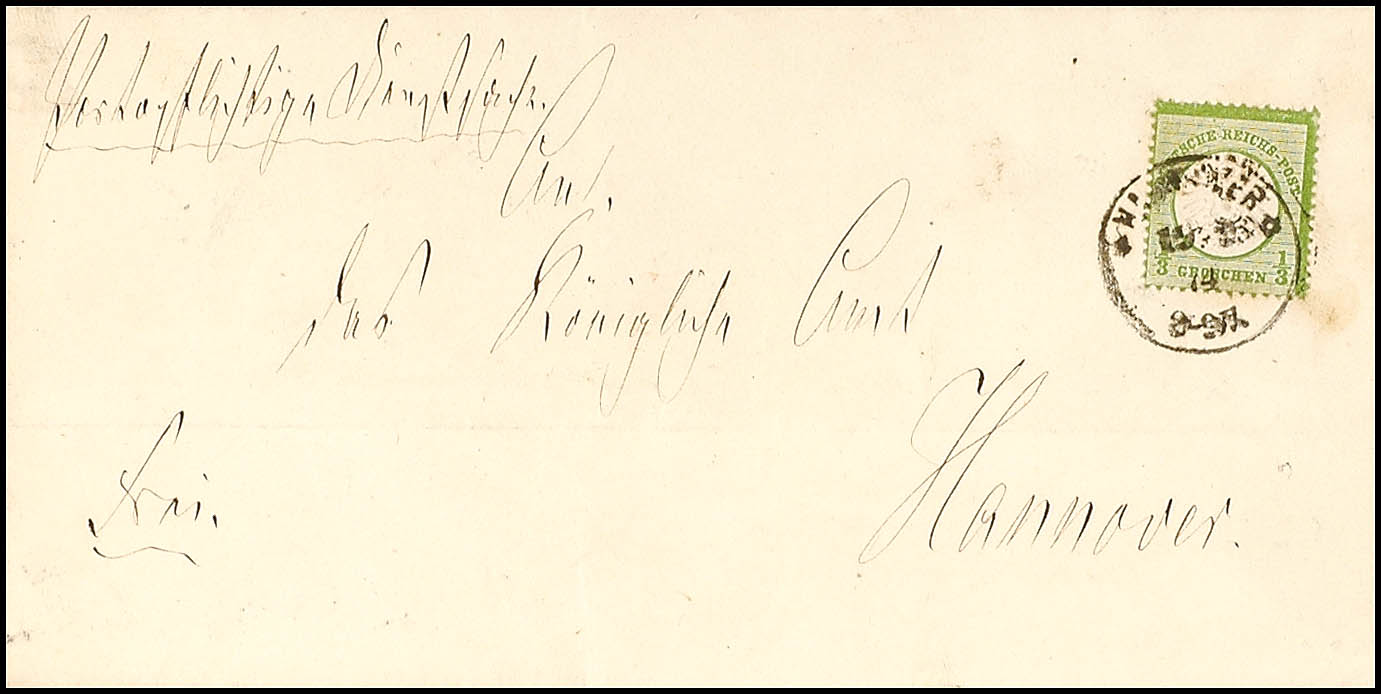 Portopflichtige Dienstsache.
An.
das Königliche Amt
Hannover.
frei.
DEUTSCHE REICHS-POST
1/3 GROSCHEN 1/3
HANNOVER